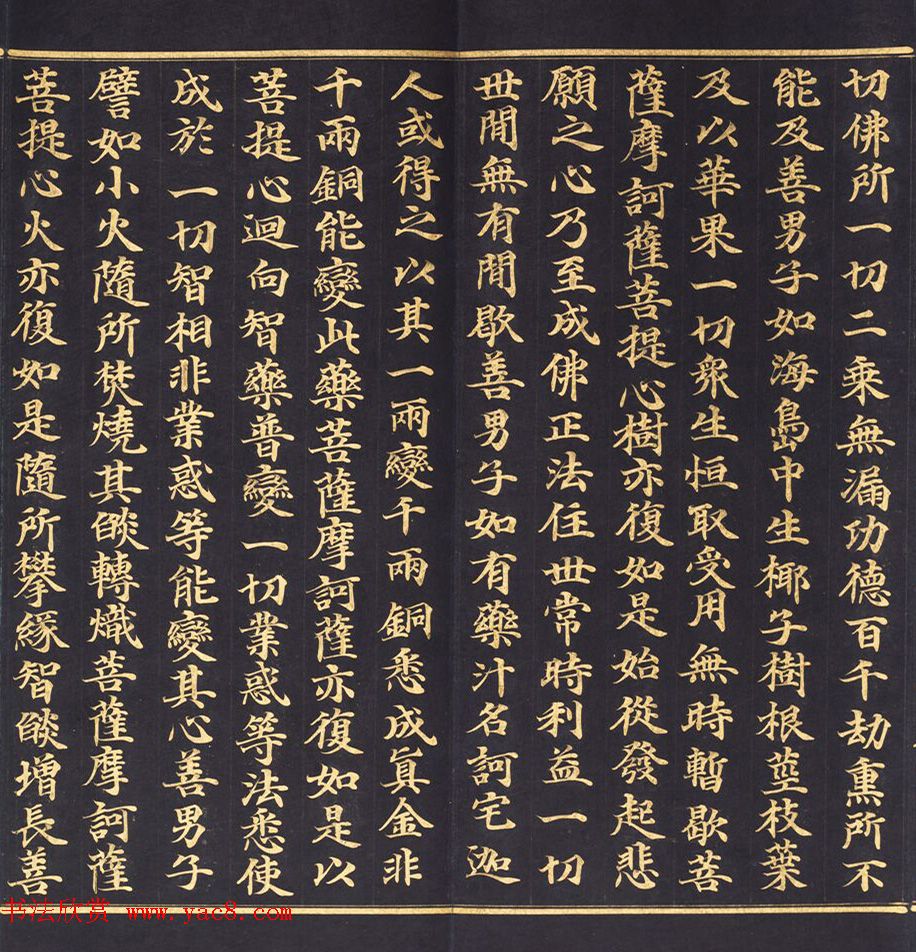 切佛所一切二乘無漏功德百千劫熏所不
能及善男子如海島中生椰子樹根莖枝葉
及以華果一切衆生恒取受用無時暫歇菩
薩摩訶薩菩提心樹亦復如是始從發起悲
願之心乃至成佛正法住世常時利益一切
世間無有間歇善男子如有藥汁名訶宅迦
人或得之以其一兩變千兩銅悉成真金非
千兩銅能變此藥菩薩摩訶薩亦復如是以
菩提心迴向智藥普變一切業惑等法悉使
成於一切智相非業惑等能變其心善男子
譬如小火隨所焚燒其燄轉熾菩薩摩訶薩
菩提心火亦復如是隨所攀緣智燄增長善
书法欣赏 www.yac8.com